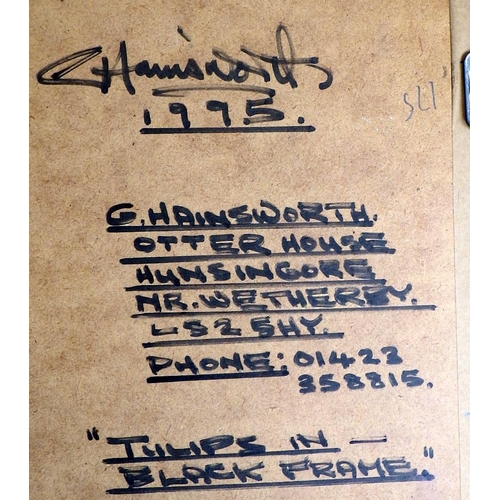 GHainsworth
1995.
SLI
G. HAINSWORTH.
OTTER HOUSE
HUNSINGORE
NR. WETHERBY.
LS2 5HY.
PHONE: 01423
358815.
"TULIPS IN —
BLACK FRAME."